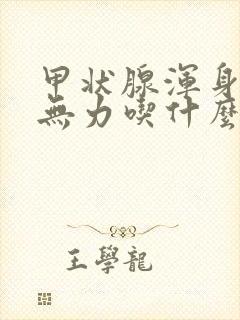 甲状腺渾身
無力喫什麽
王學龍